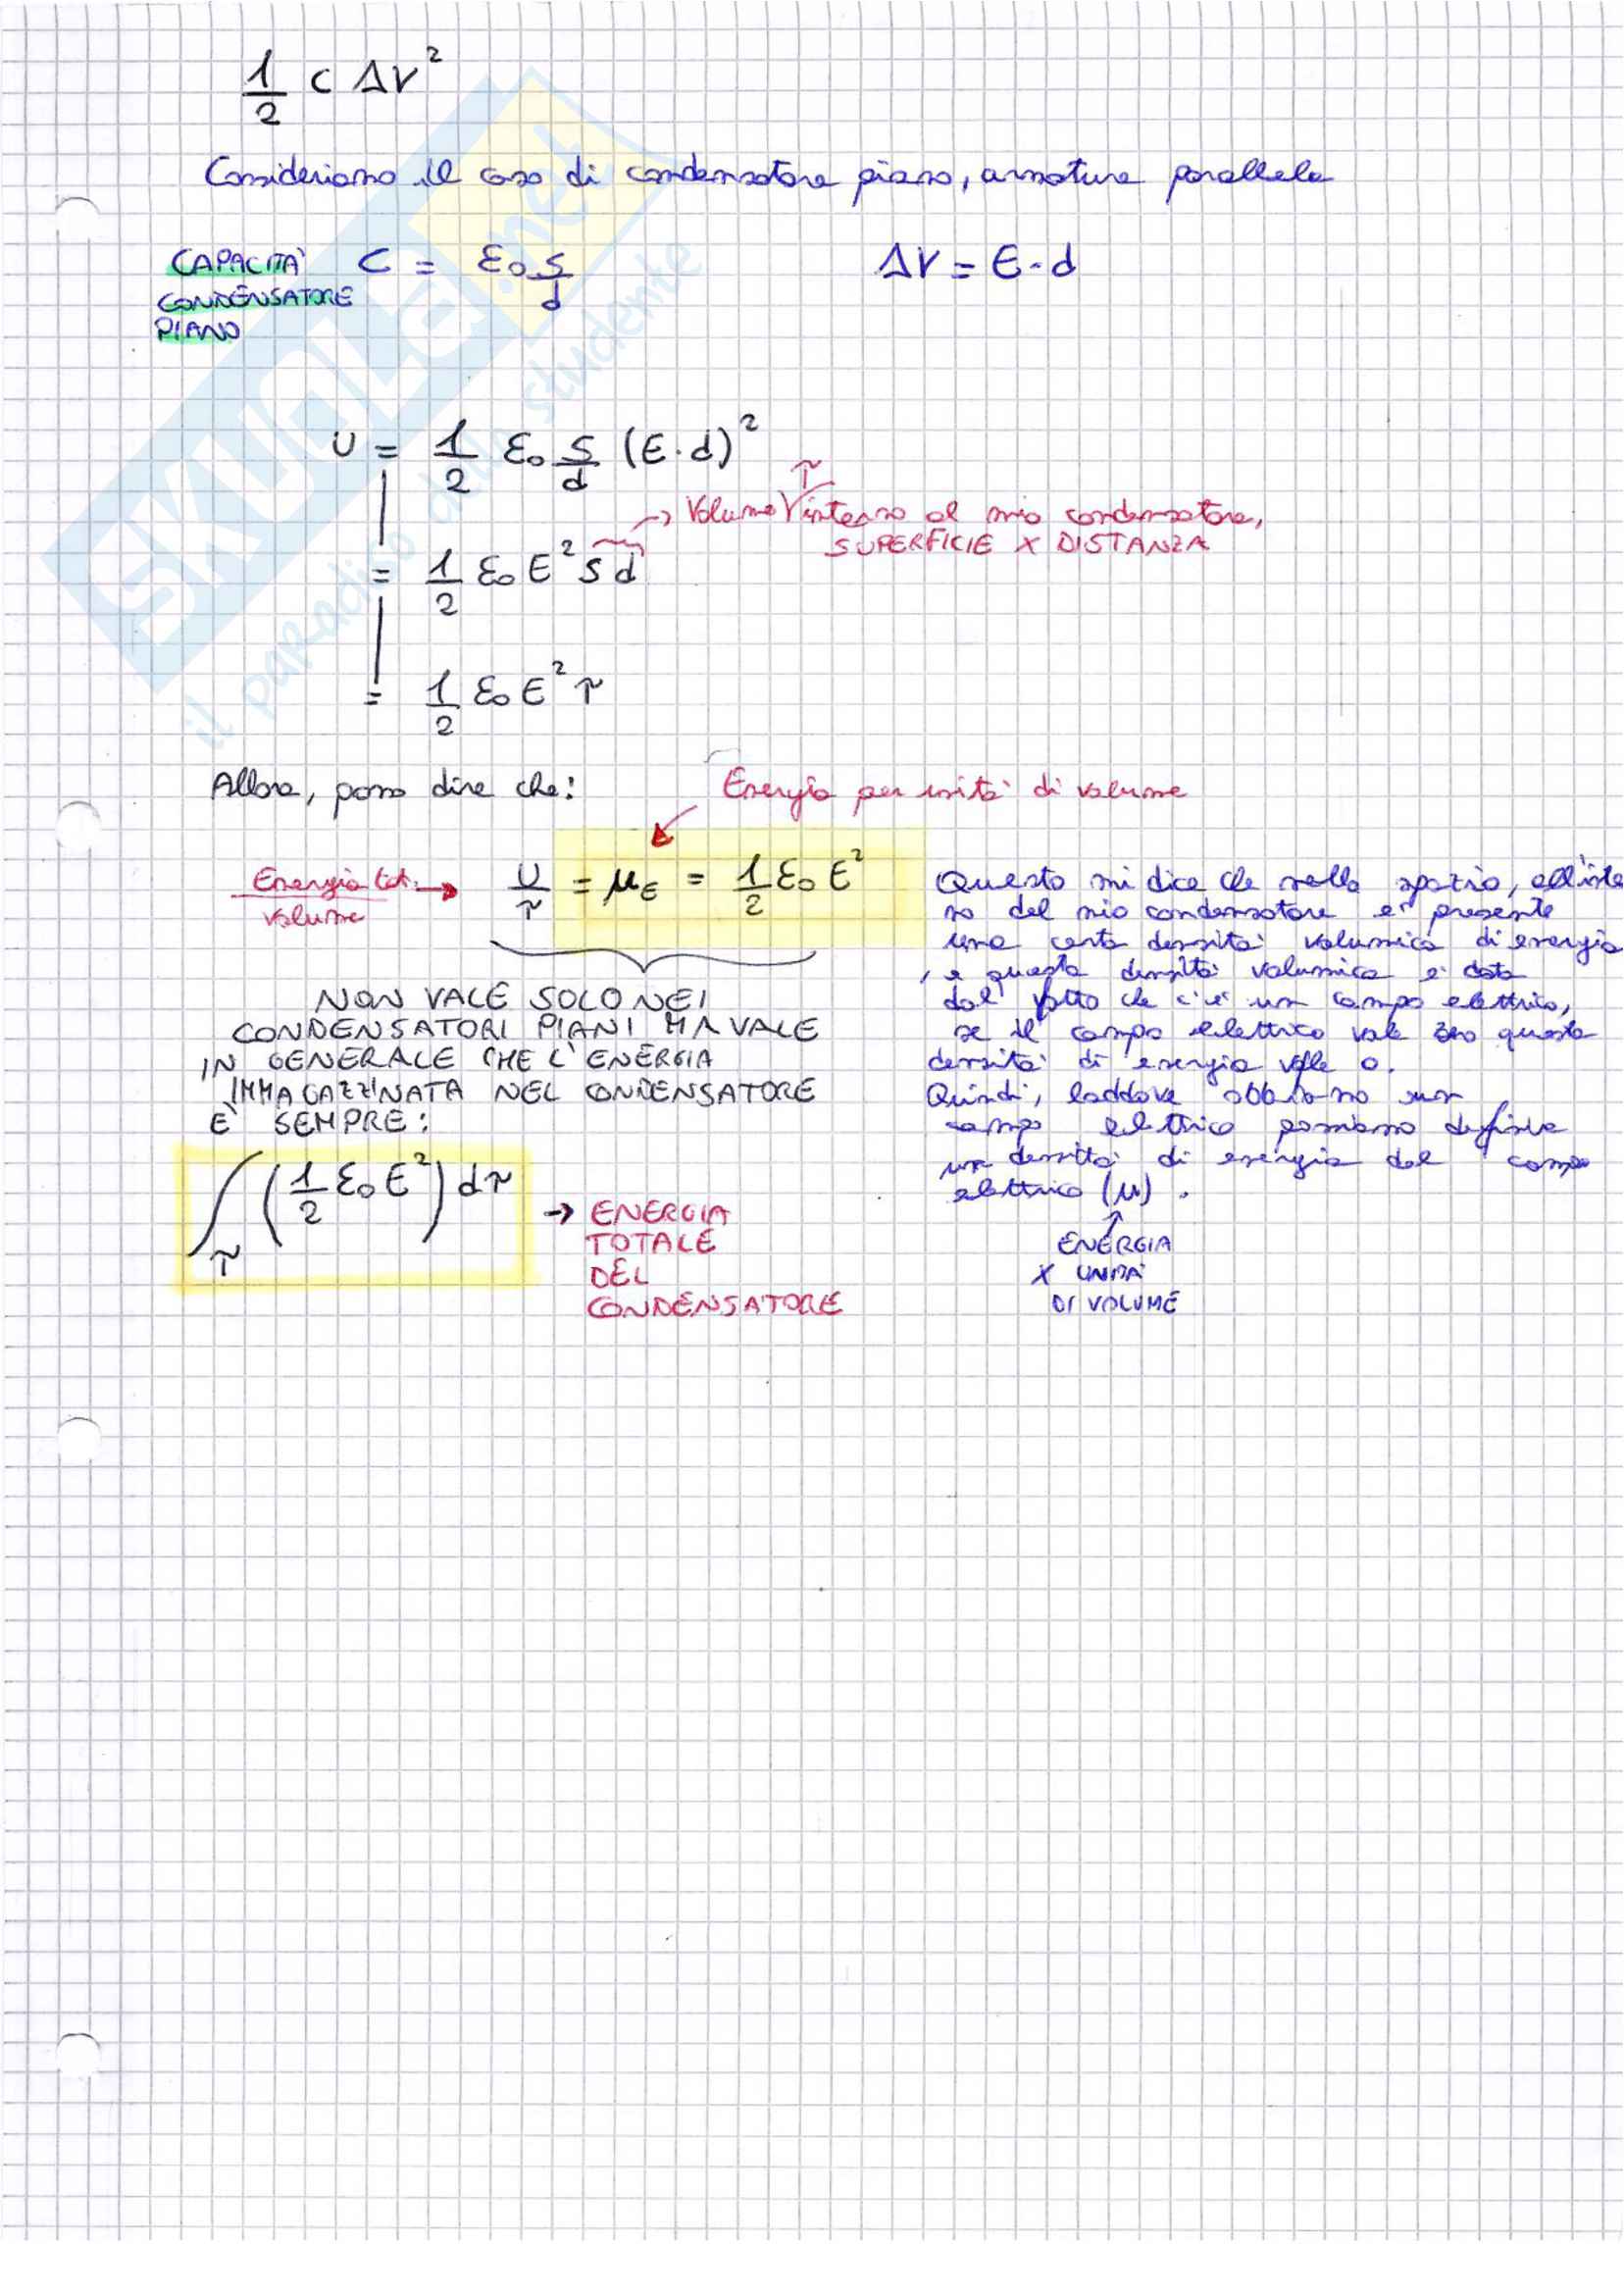 1/2 C ΔV²
Consideriamo il caso di condensatore piano, armature parallele
CAPACITÀ CONDENSATORE PIANO C = ε₀ S/d
ΔV = E · d
U = 1/2 ε₀ S/d (E · d)²
→ Volume τ interno al mio condensatore,
SUPERFICIE X DISTANZA
= 1/2 ε₀ E² S d
= 1/2 ε₀ E² τ
Allora, posso dire che:
Energia per unità di volume
Energia tot. / volume → U/τ = μ_E = 1/2 ε₀ E²
NON VALE SOLO NEI
CONDENSATORI PIANI MA VALE
IN GENERALE CHE L'ENERGIA
IMMAGAZZINATA NEL CONDENSATORE
E' SEMPRE:
∫_τ (1/2 ε₀ E²) dτ
→ ENERGIA
TOTALE
DEL
CONDENSATORE
Questo mi dice che nello spazio, all'inte
no del mio condensatore e' presente
una certa densità volumica di energia
, e questa densità volumica e' data
dal fatto che c'è un campo elettrico,
se il campo elettrico vale zero questa
densità di energia vale 0.
Quindi, laddove abbiamo un
campo elettrico possiamo definire
una densità di energia del campo
elettrico (μ).
ENERGIA
X UNITA'
DI VOLUME
SKUOLA.net
il paradiso dello studente